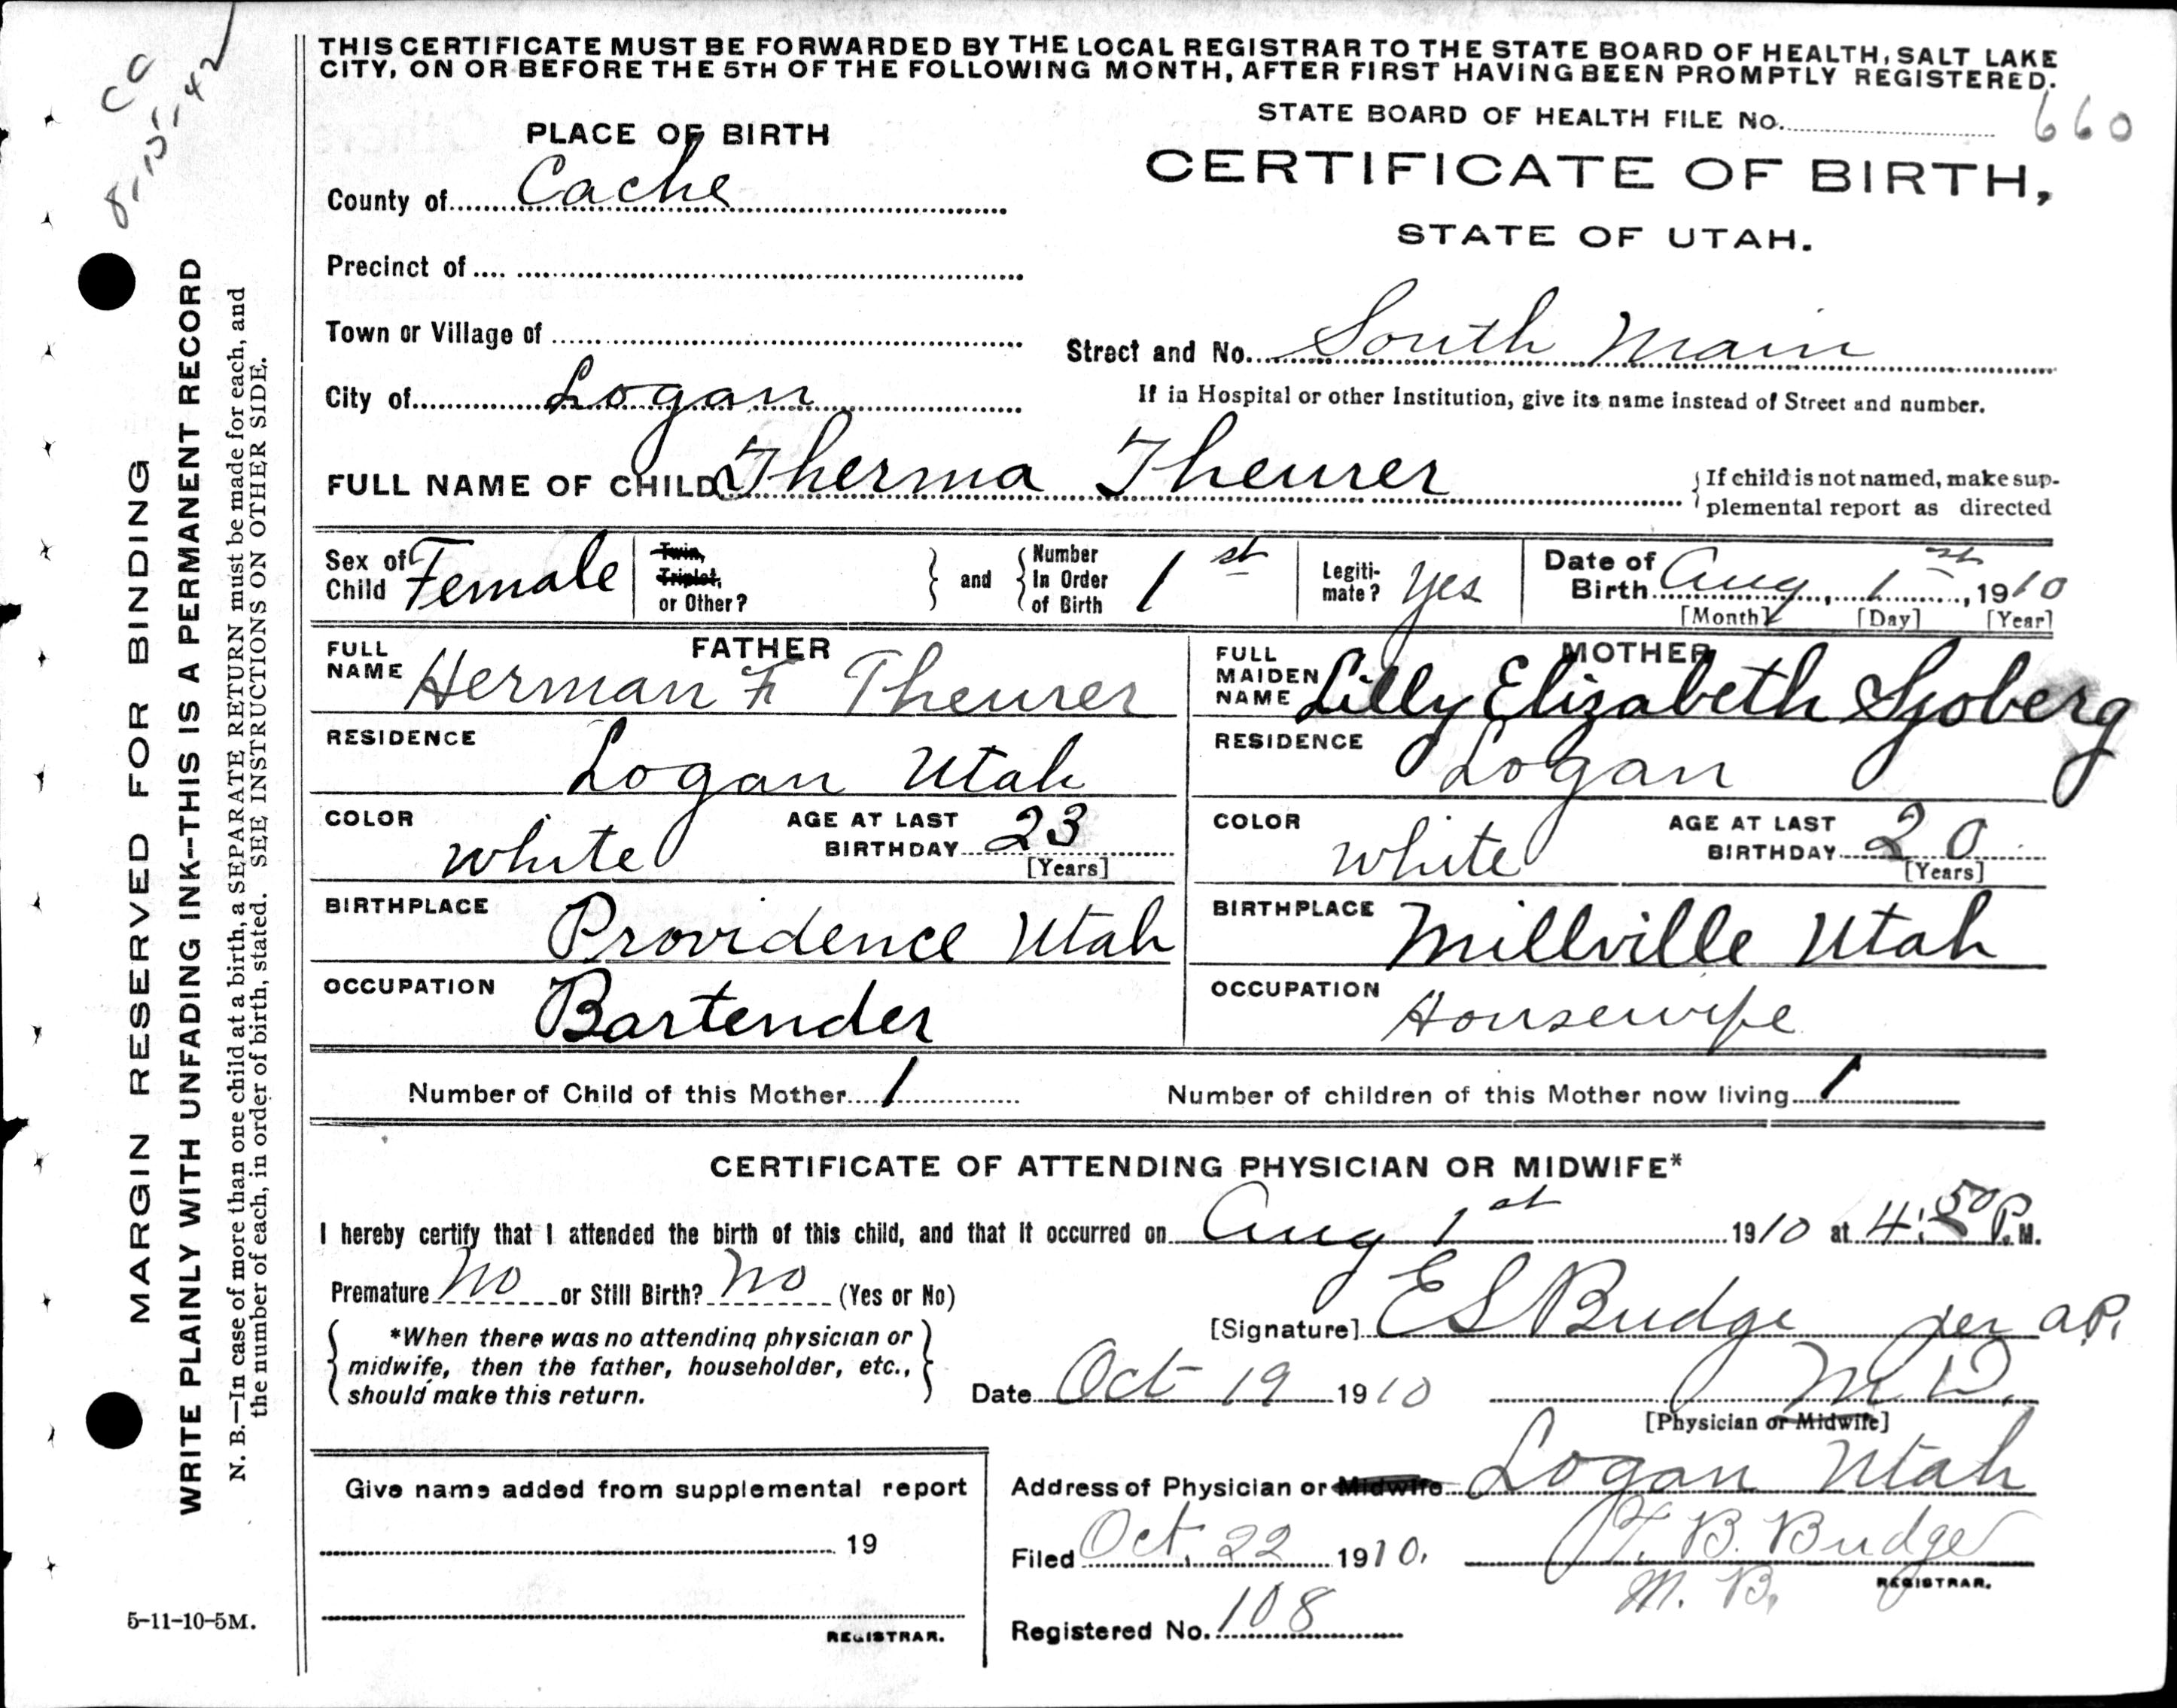 CC
8-15-42
THIS CERTIFICATE MUST BE FORWARDED BY THE LOCAL REGISTRAR TO THE STATE BOARD OF HEALTH, SALT LAKE
CITY, ON OR BEFORE THE 5TH OF THE FOLLOWING MONTH, AFTER FIRST HAVING BEEN PROMPTLY REGISTERED.
STATE BOARD OF HEALTH FILE No. 660
CERTIFICATE OF BIRTH,
STATE OF UTAH.
PLACE OF BIRTH
County of Cache
Precinct of
Town or Village of
City of Logan
Street and No. South Main
If in Hospital or other Institution, give its name instead of Street and number.
FULL NAME OF CHILD Therma Theurer
If child is not named, make sup-
plemental report as directed
Sex of Child Female
Twin, Triplet, or Other?
and Number In Order of Birth 1st
Legiti-mate? Yes
Date of Birth Aug, 1st, 1910
[Month] [Day] [Year]
FATHER
FULL NAME Herman F Theurer
RESIDENCE Logan Utah
COLOR white AGE AT LAST BIRTHDAY 23
[Years]
BIRTHPLACE Providence Utah
OCCUPATION Bartender
MOTHER
FULL MAIDEN NAME Lilly Elizabeth Sjoberg
RESIDENCE Logan
COLOR white AGE AT LAST BIRTHDAY 20
[Years]
BIRTHPLACE Millville Utah
OCCUPATION Housewife
Number of Child of this Mother 1 Number of children of this Mother now living 1
CERTIFICATE OF ATTENDING PHYSICIAN OR MIDWIFE*
I hereby certify that I attended the birth of this child, and that it occurred on Aug 1st 1910 at 4:50 P.M.
Premature No or Still Birth? No (Yes or No)
*When there was no attending physician or
midwife, then the father, householder, etc.,
should make this return.
[Signature] E S Budge per a.P.
Date Oct 19 1910 M D.
[Physician or Midwife]
Give name added from supplemental report
19
REGISTRAR.
Address of Physician or Midwife Logan Utah
Filed Oct, 22 1910. T. B. Budge
M. B. REGISTRAR.
Registered No. 108
5-11-10-5M.
MARGIN RESERVED FOR BINDING
WRITE PLAINLY WITH UNFADING INK--THIS IS A PERMANENT RECORD
N. B.—In case of more than one child at a birth, a SEPARATE RETURN must be made for each, and
the number of each, in order of birth, stated. SEE INSTRUCTIONS ON OTHER SIDE.